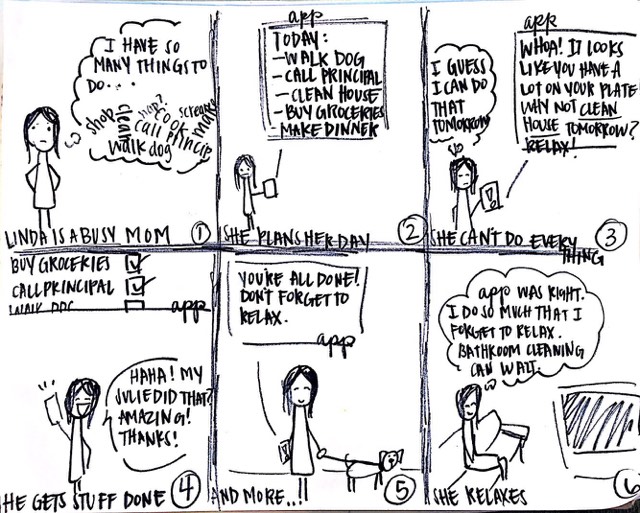 I HAVE SO
MANY THINGS TO
DO...
shop
clean
nap?
cook
scream
call princip
walk dog
LINDA IS A BUSY MOM
1
app
TODAY:
-WALK DOG
-CALL PRINCIPAL
-CLEAN HOUSE
-BUY GROCERIES
-MAKE DINNER
SHE PLANS HER DAY
2
I GUESS
I CAN DO
THAT
TOMORROW
app
WHOA! IT LOOKS
LIKE YOU HAVE A
LOT ON YOUR PLATE
WHY NOT CLEAN
HOUSE TOMORROW?
RELAX!
SHE CAN'T DO EVERY
THING
3
BUY GROCERIES
CALL PRINCIPAL
WALK DOG
app
HAHA! MY
JULIE DID THAT?
AMAZING!
THANKS!
HE GETS STUFF DONE
4
YOU'RE ALL DONE!
DON'T FORGET TO
RELAX.
app
AND MORE..!
5
app WAS RIGHT.
I DO SO MUCH THAT I
FORGET TO RELAX.
BATHROOM CLEANING
CAN WAIT.
SHE RELAXES
6